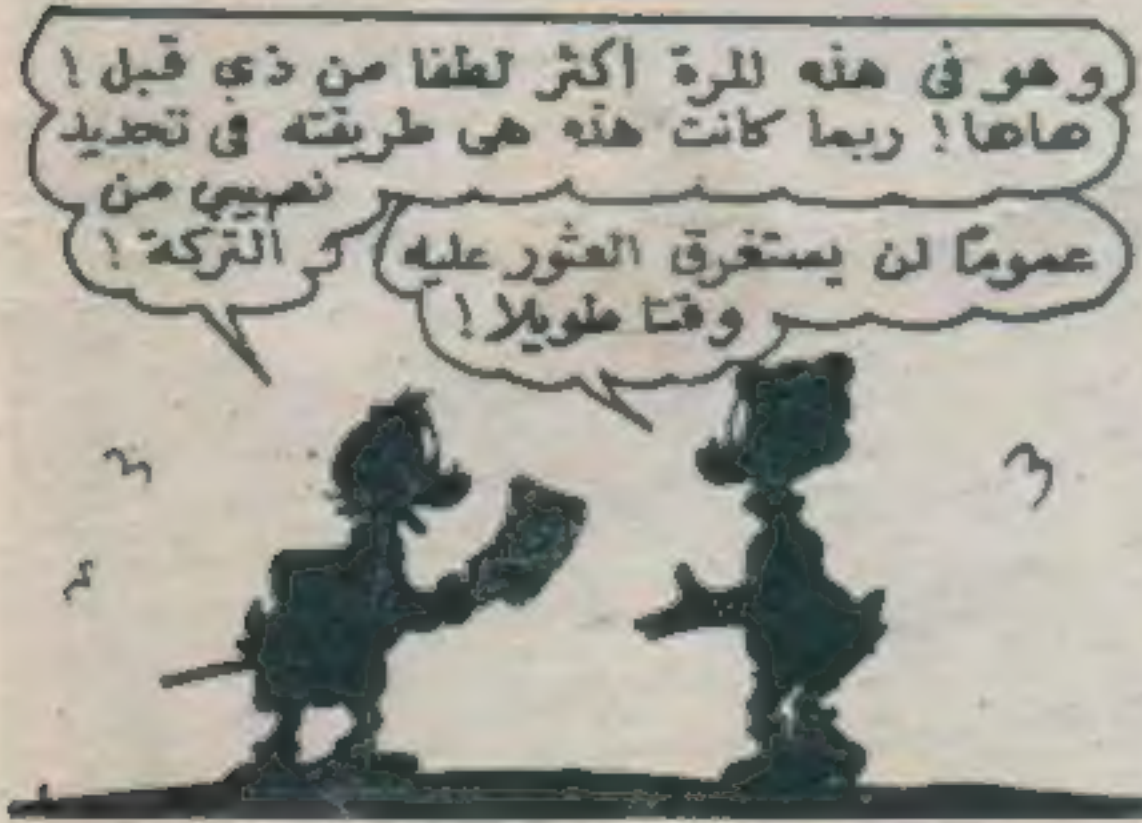 وهو في هذه المرة أكثر لطفا من ذي قبل !
هاها ! ربما كانت هذه هي طريقته في تحديد
نصيبي من
التركة !
عموماً لن يستغرق العثور عليه
وقتا طويلا !